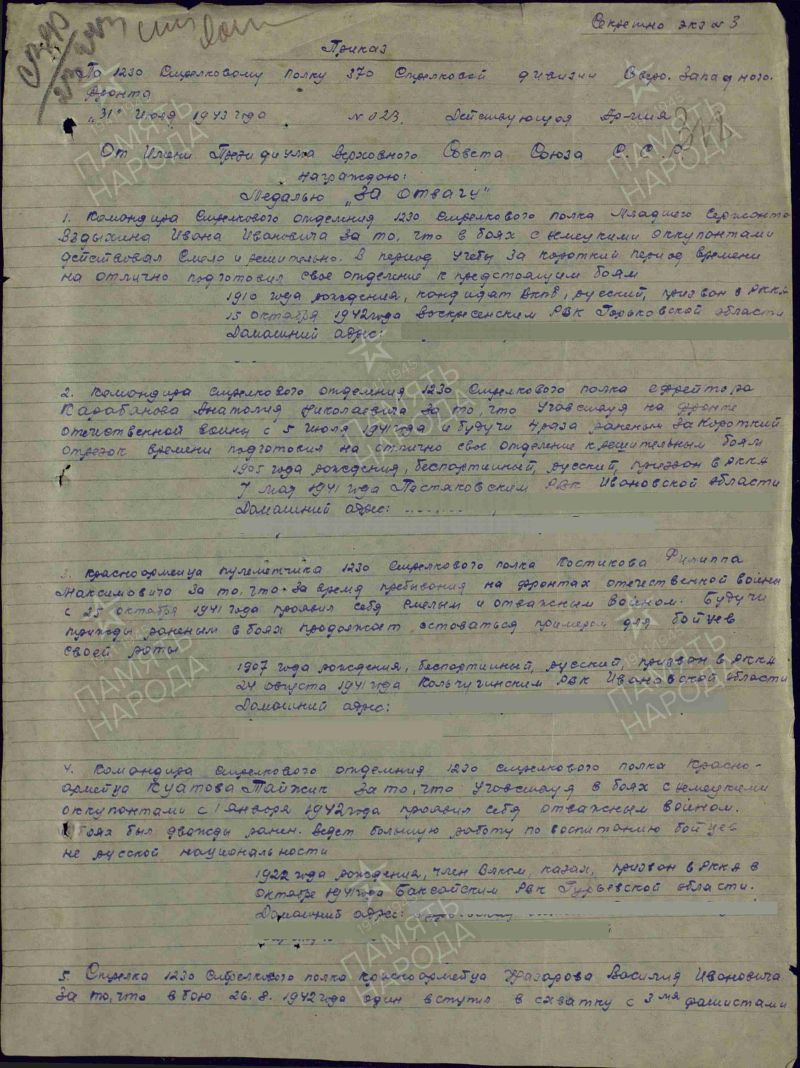 Секретно экз № 3
Приказ
По 1230 Стрелковому полку 370 Стрелковой дивизии Северо-Западного
фронта
"31" Июля 1943 года № 023. Действующая Армия
От Имени Президиума Верховного Совета Союза С.С.Р.
награждаю:
Медалью "За отвагу"
1. Командира стрелкового отделения 1230 Стрелкового полка Младшего Сержанта
Вздыхина Ивана Ивановича За то, что в боях с немецкими оккупантами
действовал Смело и решительно. В период учебы За короткий период времени
на отлично подготовил свое отделение к предстоящим боям
1910 года рождения, кандидат ВКПБ, русский, призван в РККА
15 октября 1942 года Воскресенским РВК Горьковской области
Домашний адрес:
2. Командира стрелкового отделения 1230 Стрелкового полка ефрейтора
Карабанова Анатолия Николаевича За то, что Участвуя на фронте
отечественной войны с 5 июля 1941 года и будучи 4 раза раненым За короткий
отрезок времени подготовил на отлично свое отделение к решительным боям
1905 года рождения, беспартийный, русский, призван в РККА
7 мая 1941 года Пестяковским РВК Ивановской области
Домашний адрес:
3. Красноармейца пулеметчика 1230 Стрелкового полка Костикова Филиппа
Максимовича За то, что За время пребывания на фронтах отечественной войны
с 25 октября 1941 года проявил себя Смелым и отважным воином. Будучи
трижды раненым в боях продолжает оставаться примером для бойцев
своей роты
1907 года рождения, беспартийный, русский, призван в РККА
24 августа 1941 года Кольчугинским РВК Ивановской области
Домашний адрес:
4. Командира стрелкового отделения 1230 стрелкового полка Красно-
армейца Куатова Тайжик За то, что Участвуя в боях с немецкими
оккупантами с 1 января 1942 года проявил себя отважным воином.
В боях был дважды ранен. Ведет большую работу по воспитанию бойцев
не русской национальности
1922 года рождения, член ВЛКСМ, казах, призван в РККА в
Октябре 1941 года Баксайским РВК Гурьевской области.
Домашний адрес:
5. Стрелка 1230 Стрелкового полка Красноармейца Назарова Василия Ивановича
За то, что в бою 26.8.1942 года один вступил в схватку с 3мя фашистами
ПАМЯТЬ НАРОДА